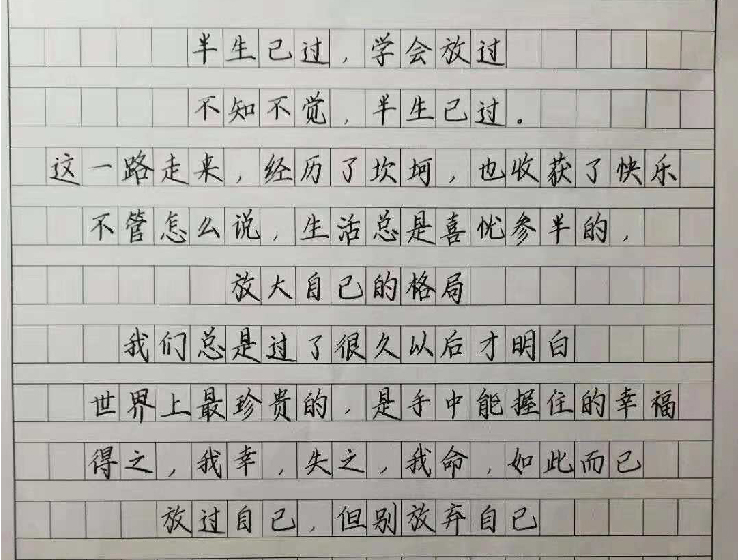 半生已过，学会放过
不知不觉，半生已过。
这一路走来，经历了坎坷，也收获了快乐
不管怎么说，生活总是喜忧参半的，
放大自己的格局
我们总是过了很久以后才明白
世界上最珍贵的，是手中能握住的幸福
得之，我幸，失之，我命，如此而已
放过自己，但别放弃自己